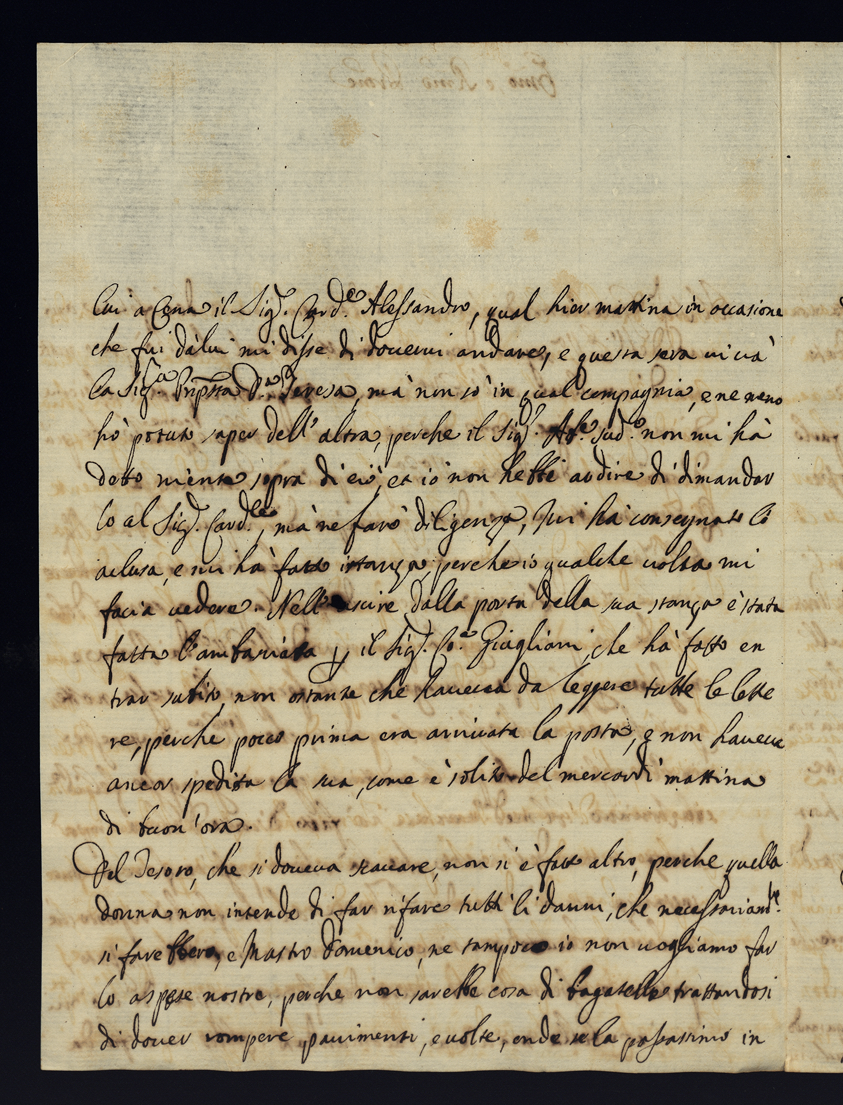 lui a Cena il Sig.r Card.le Alessandro, qual hier mattina in occasione
che fui da lui mi disse di dovervi andare, e questa sera vi và
la Sig.ra Pnpssa D.a Teresa, mà non sò in qual compagnia, e ne meno
hò potuto saper dell'altra, perche il Sig.r Ab.e sud.o non mi hà
detto niente sopra di ciò, et io non hebbi ardire di dimandar
lo al Sig.r Card.le, mà ne farò diligenza, qui hà consegnato lo
aclusa, e mi hà fatto istanza, perche io qualche volta mi
facia vedere. Nell'uscire dalla porta della sua stanza è stata
fatta l'ambaciata p il Sig.r Co. Giugliani, che hà fatto en
trar subito, non ostante che haveva da leggere tutte le lette
re, perche poco prima era arrivata la posta, e non haveva
ancor spedita la sua, come è solito del mercordi mattina
di buon'ora.
Del Tesoro, che si doveva scavare, non si è fatto altro, perche quella
donna non intende di far rifare tutti li danni, che necessariam.te
si farebbero, e Mastro Domenico, ne tampoco io non vogliamo far
lo a spese nostre, perche non sarebbe cosa di bagatelle trattandosi
di dover rompere pavimenti, e volte, onde se la passassimo in